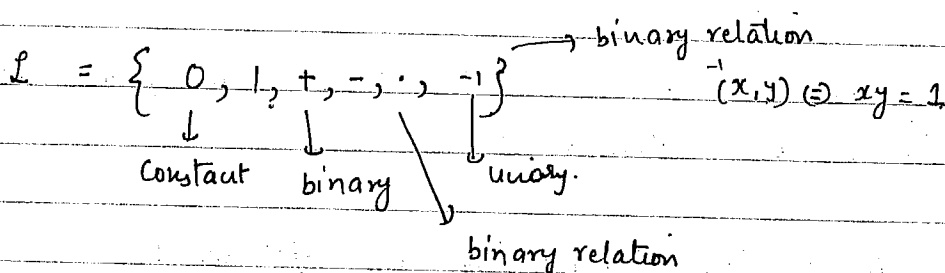 binary relation
L = { 0, 1, +, -, ·, -1 }
⁻¹(x,y) ⇔ xy = 1
constant binary unary.
binary relation